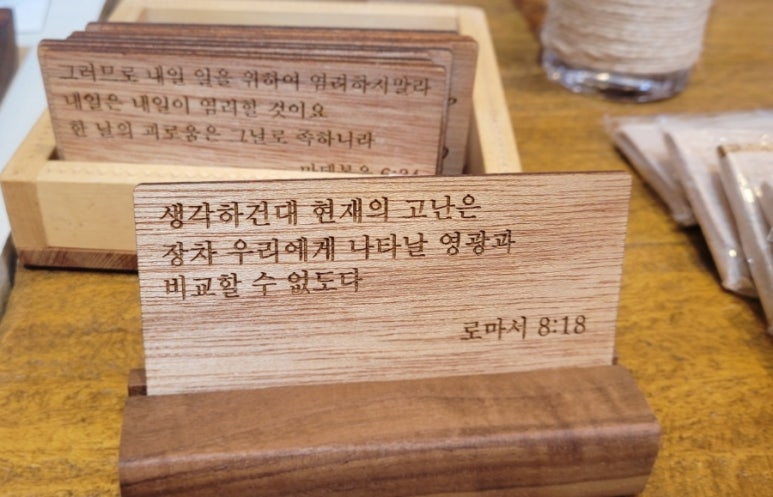 그러므로 내일 일을 위하여 염려하지말라
내일은 내일이 염려할 것이요
한 날의 괴로움은 그날로 족하니라
마태복음 6:34
생각하건대 현재의 고난은
장차 우리에게 나타날 영광과
비교할 수 없도다
로마서 8:18